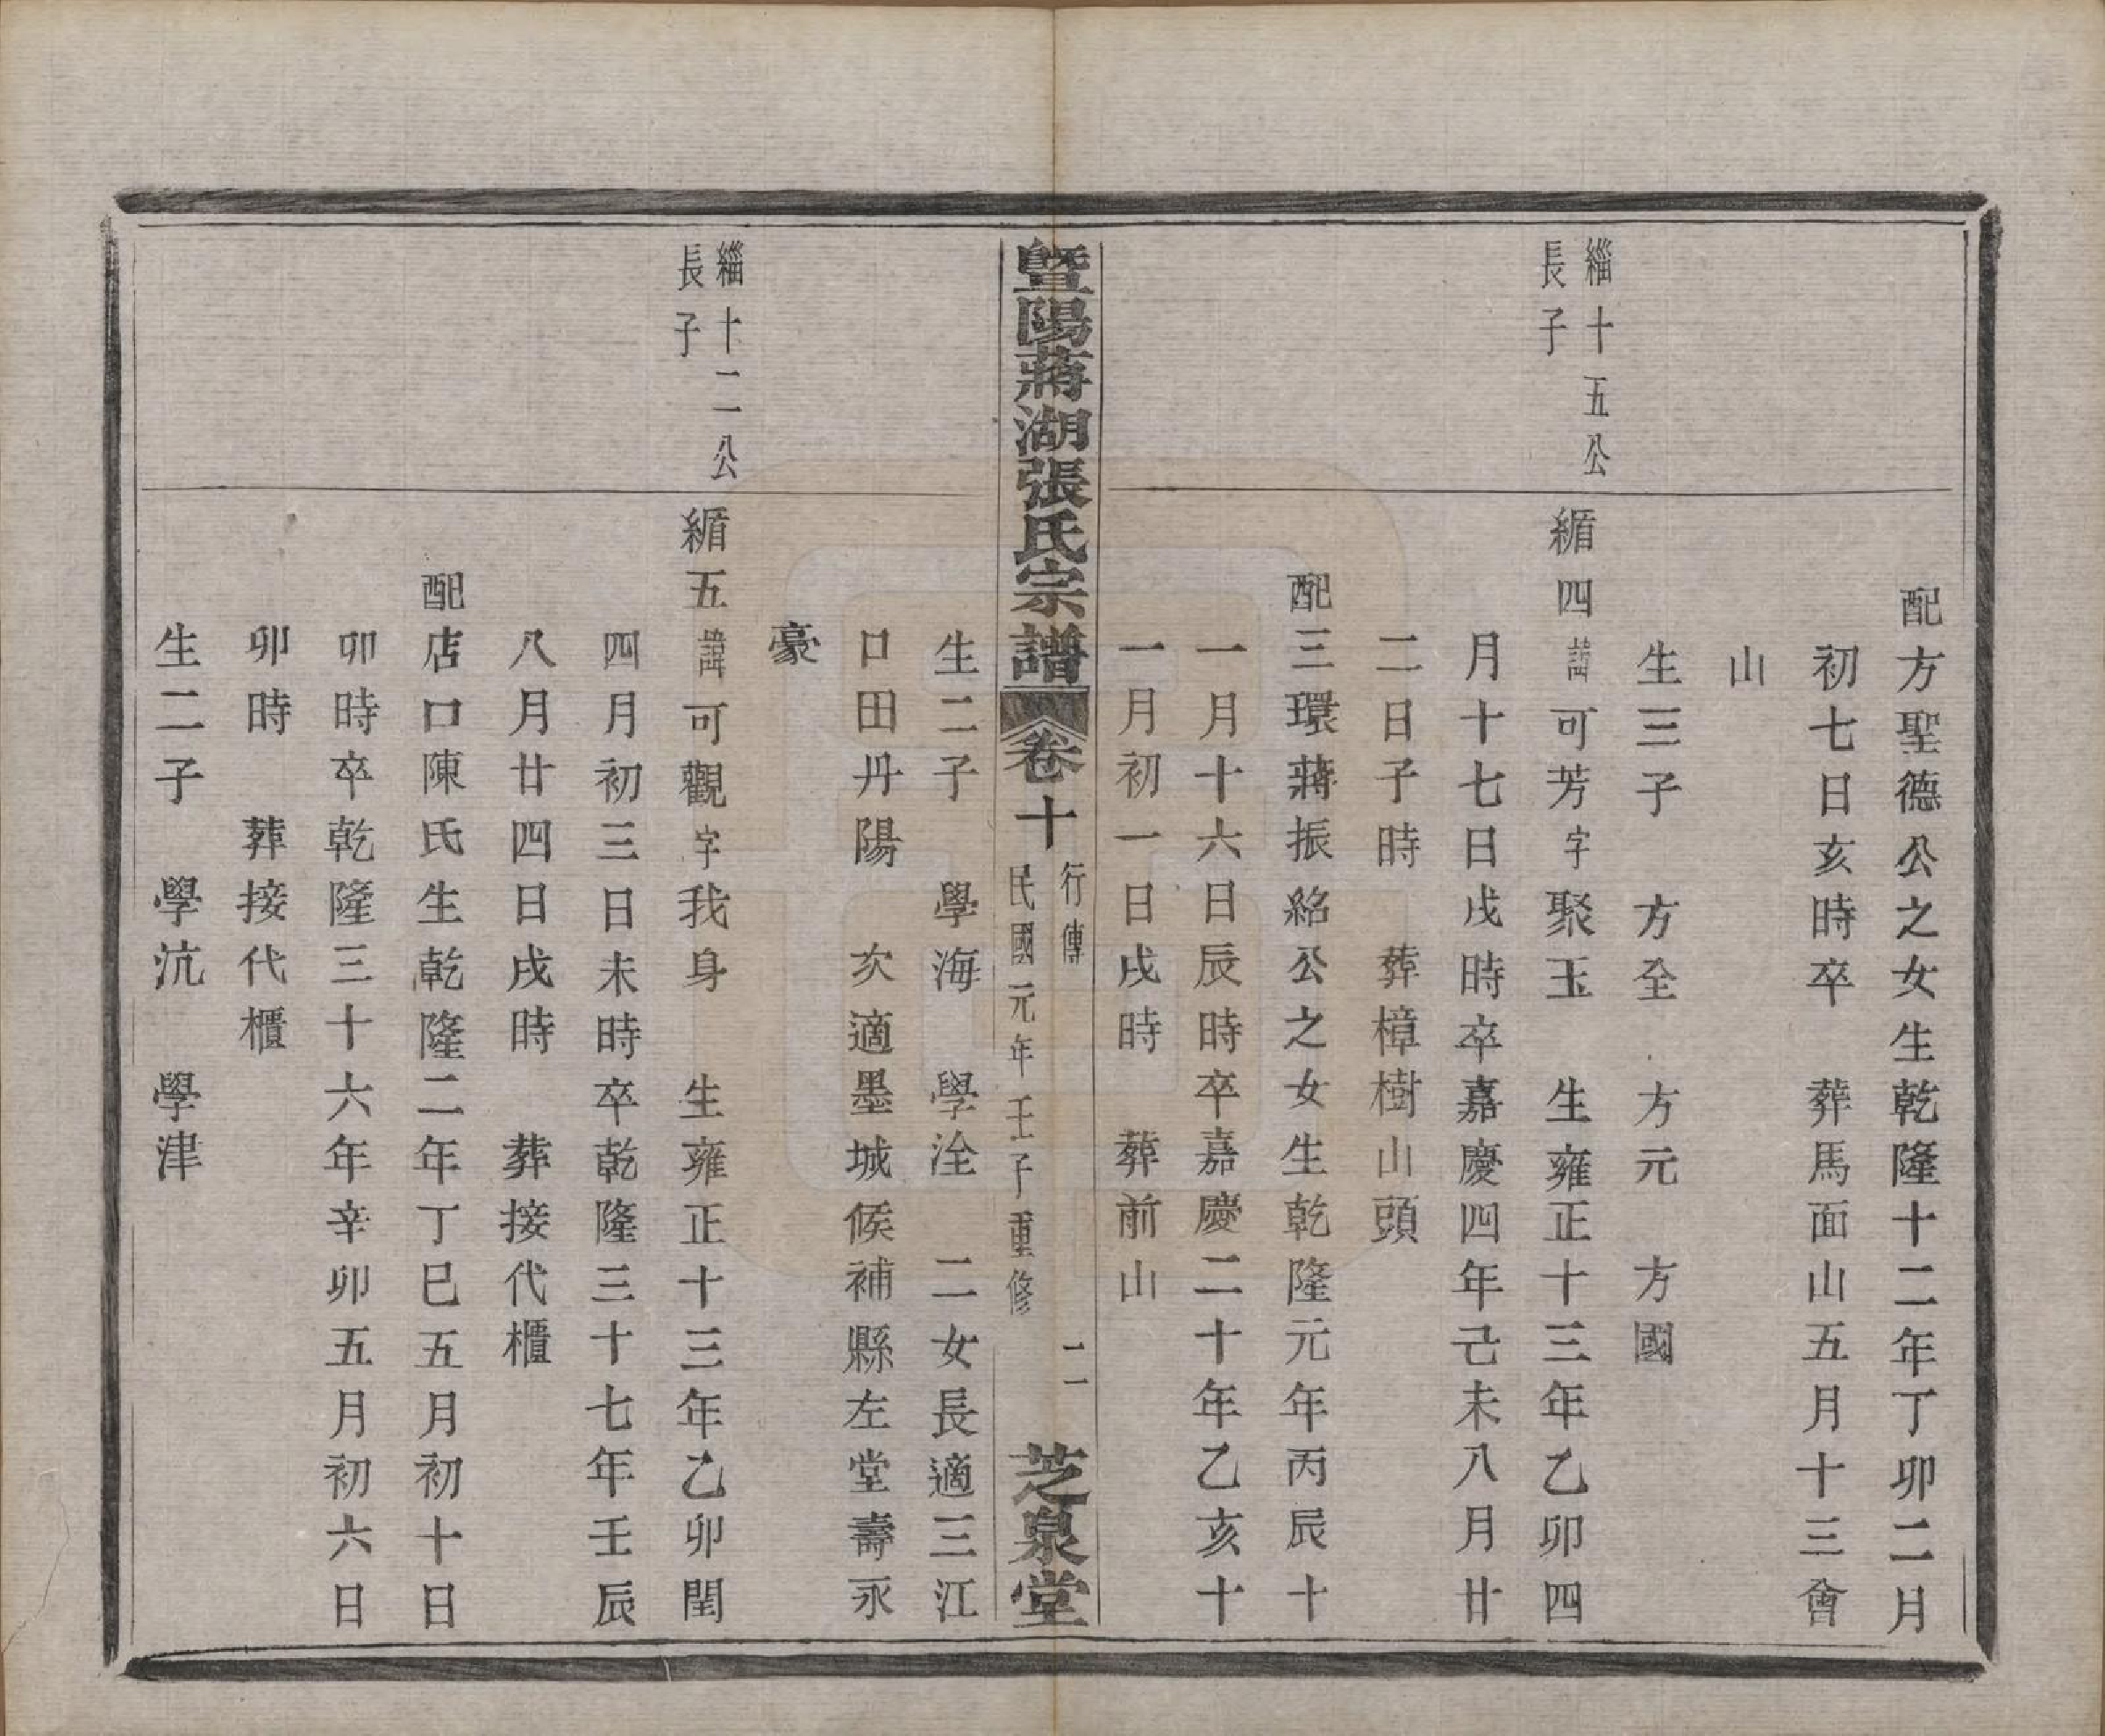 配方聖德公之女生乾隆十二年丁卯二月
初七日亥時卒　葬馬面山五月十三會
山
生三子　方全　方元　方國
緇十五公
長子
緧四諱可芳字聚玉　生雍正十三年乙卯四
月十七日戌時卒嘉慶四年己未八月廿
二日子時　葬樟樹山頭
配三環蔣振銘公之女生乾隆元年丙辰十
一月十六日辰時卒嘉慶二十年乙亥十
一月初一日戌時　葬前山
暨陽蔣湖張氏宗譜　卷十
行傳　二
民國元年壬子重修
芝泉堂
生二子　學海　學洤　二女長適三江
口田丹陽　次適墨城候補縣左堂壽永
豪
緇十二公
長子
緧五諱可觀字我身　生雍正十三年乙卯閏
四月初三日未時卒乾隆三十七年壬辰
八月廿四日戌時　葬接代櫃
配店口陳氏生乾隆二年丁巳五月初十日
卯時卒乾隆三十六年辛卯五月初六日
卯時　葬接代櫃
生二子　學沆　學津